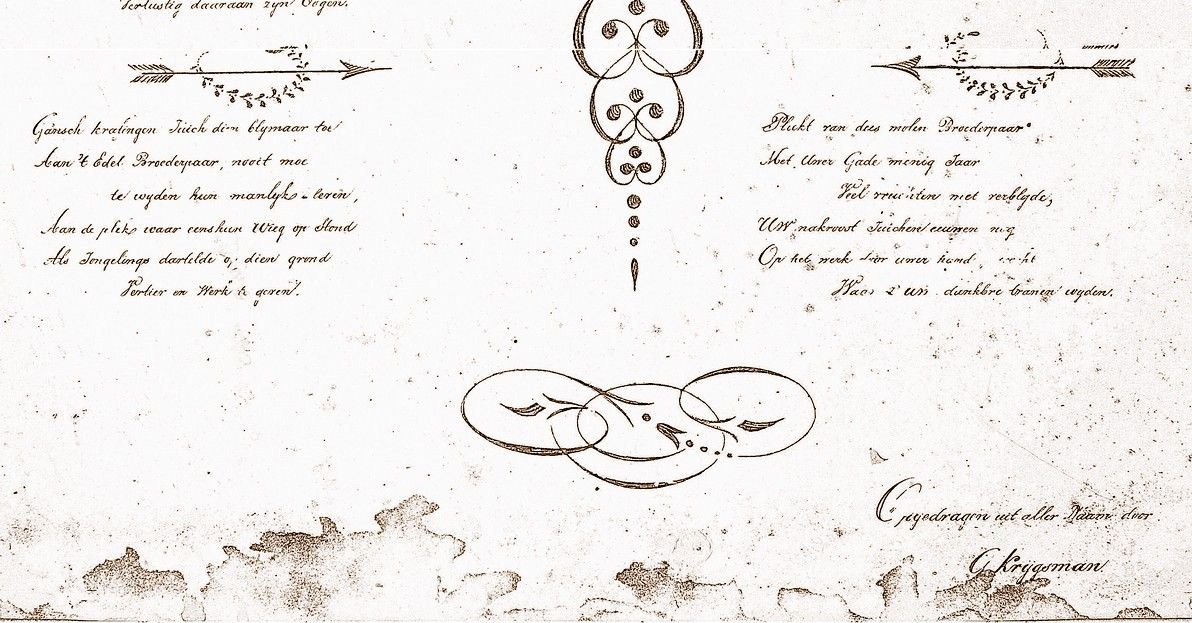 Verlustig daaraan zyn Oogen.
Gansch kralingen Juich dien blymaar toe
Aan 't Edel Broederpaar, nooit moe
te wyden hun manlyk leven,
Aan de plek waar eens hun Wieg op Stond
Als Jongelings dartelde op dien grond
Vertier en Werk te geven.
Plukt van dees molen Broederpaar
Met Uwer Gade menig Jaar
Veel vruchten met verblyde,
UW nakroost Juichen eeuwen nog
Op het werk door uwer hand
Waar z' un dankbre tranen wyden.
Opgedragen uit aller Naam door
G Krygsman